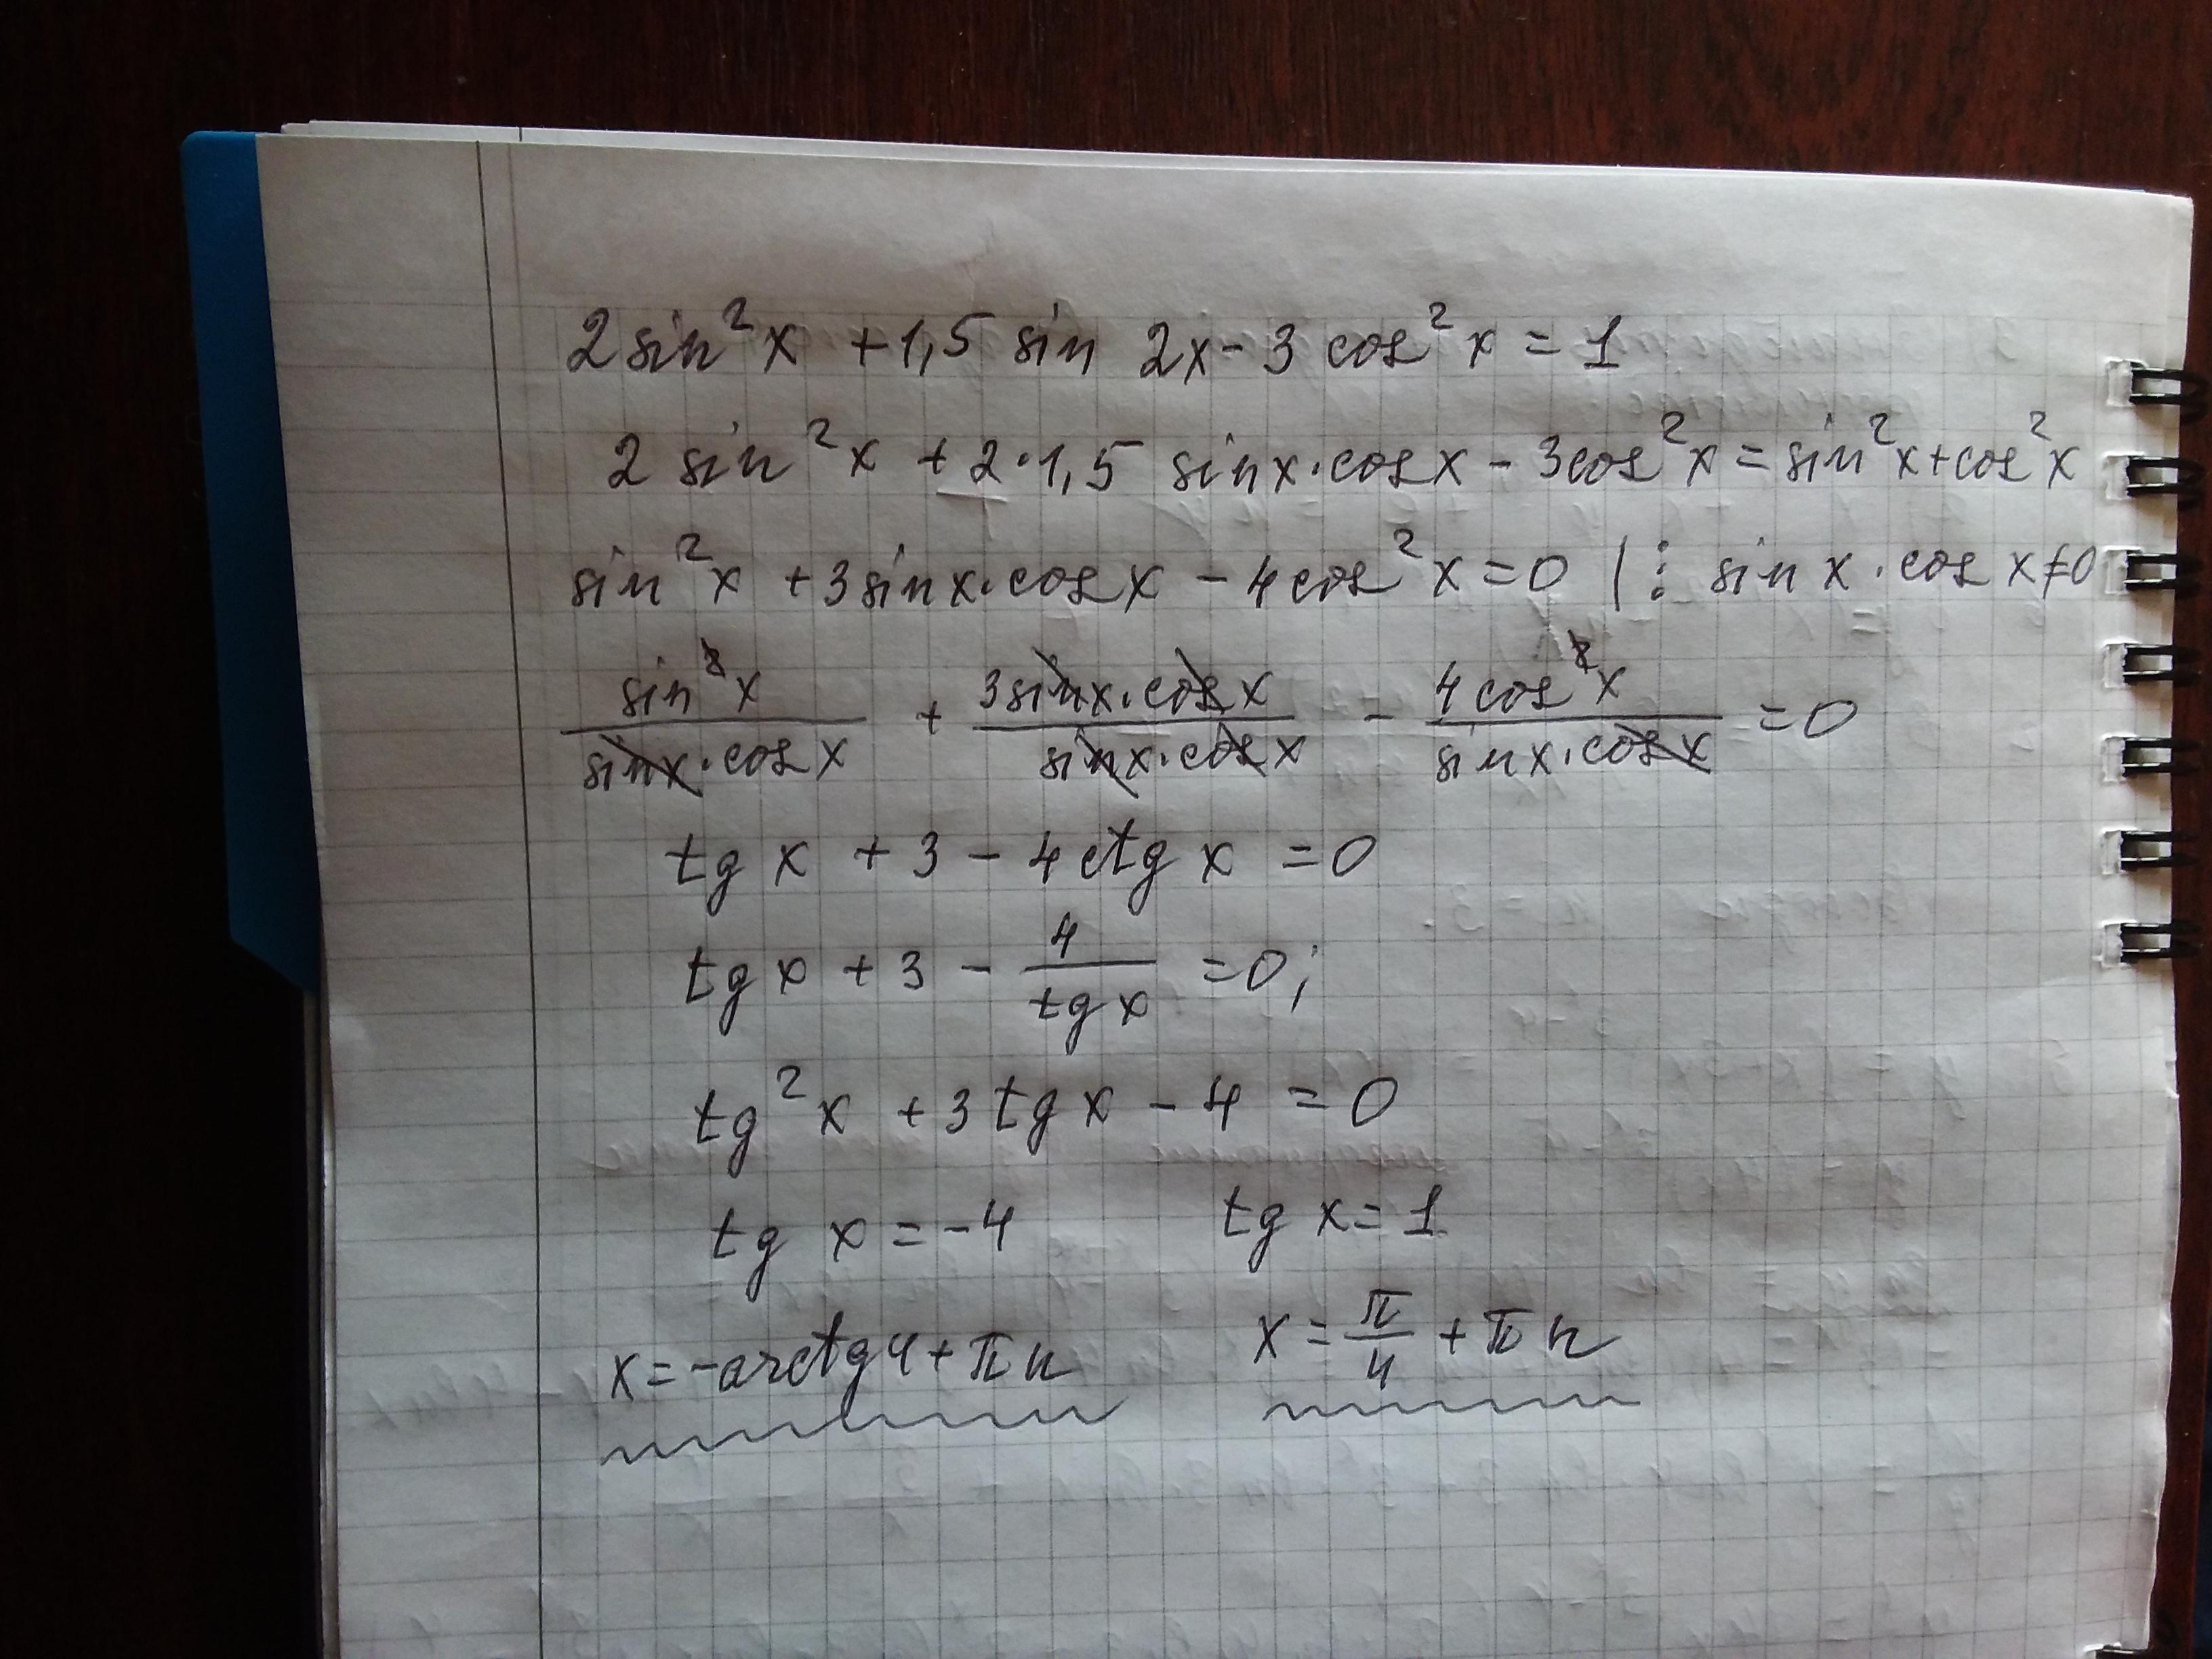 2 sin²x + 1,5 sin 2x - 3 cos²x = 1
2 sin²x + 2·1,5 sinx·cosx - 3cos²x = sin²x + cos²x
sin²x + 3sinx·cosx - 4cos²x = 0 | : sin x · cos x ≠ 0
sin²x/(sinx·cosx) + 3sinx·cosx/(sinx·cosx) - 4cos²x/(sinx·cosx) = 0
tg x + 3 - 4ctg x = 0
tg x + 3 - 4/tg x = 0;
tg²x + 3tg x - 4 = 0
tg x = -4 tg x = 1
x = -arctg4 + πn x = π/4 + πn